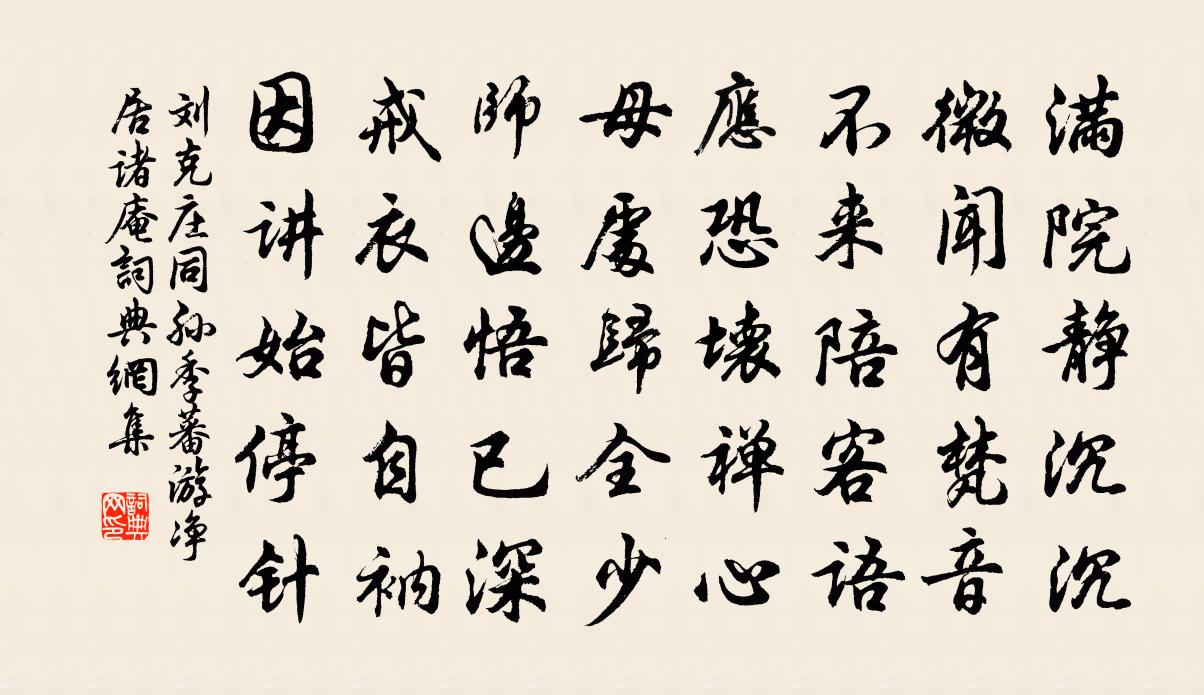 滿院静沉沉
微闻有梵音
不来陪客语
應恐壊禅心
母處歸全少
師邊悟已深
戒衣皆自衲
因讲始停针
刘克庄同孙季蕃游净
居诸庵詞典網集
詞典
网印